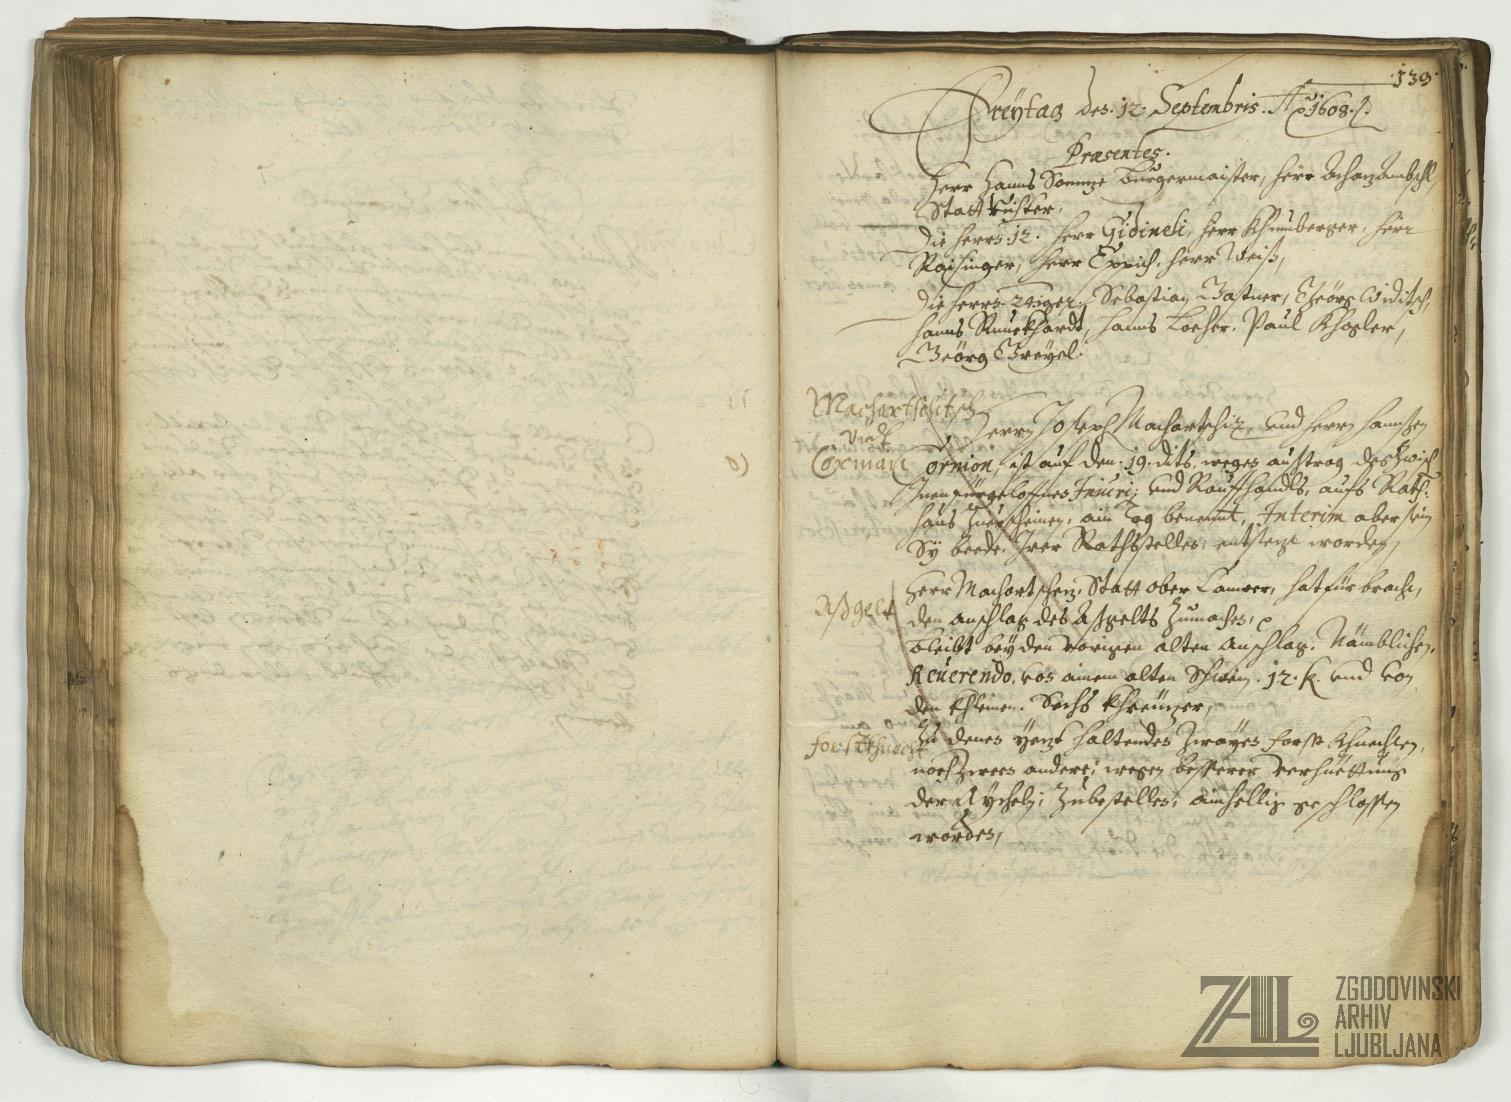 139
Freÿtag des. 12. Septembris. Aº 1608. 
Præsentes.
Herr Hanns Sonnze Burgermaister, herr Achaz
Statt Richter.
Die herrn 12. herr Gidineli, herr Khunberger, herr
Raisinger, herr Eppich. herr Weiß,
Die herrn. 24iger. Sebastian Gastner, Geörg Viditsch,
Hanns Ruuekhardt, Hanns Locher. Paul Khosler,
Geörg Greysl.
Machartschitsch
vnd
Cormain
Herrn Joseph Machartschiz, vnd herrn Hannßen
Cornion, ist auf den. 19. dits, wegen austrag des Zwisch
Inen fürgeloffnes Iniuri; vnd Rauffhandls, aufs Rath=
haus Zuerscheinen, ain Tag benennt, Interim aber sein
Sÿ beede. Irer Rathsstellen, entsezt worden,
Aßgelt
Herr Machartschez, Statt ober Camrer, hat für bracht,
den anschlag des Aßgelts Zumachen,
Bleibt beÿ den vorigen alten anschlag. Nämblichen.
Reuerendo, von ainem alten Schwein. 12. k. vnd von
den khleinen. Sechs khreüzer,
forstkhnecht
Zu denen yezt haltenden Zwayen forst khnechten,
noch Zween andere, wegen besserer verhüettung
der Aÿcheln, Zubestellen, ainhellig geschlossen
worden,
ZAL
ZGODOVINSKI
ARHIV
LJUBLJANA